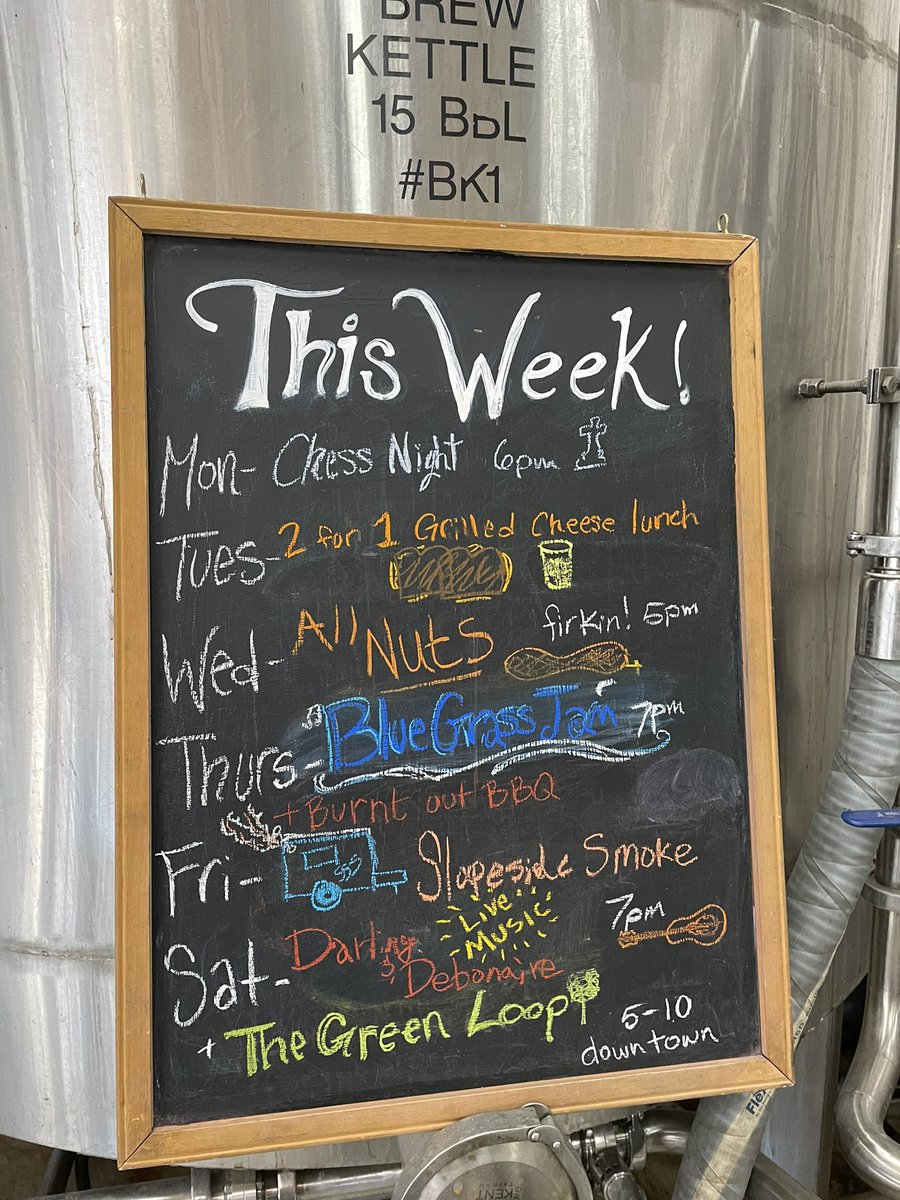 BREW
KETTLE
15 BbL
#BK1
This Week!
Mon- Chess Night 6pm
Tues- 2 for 1 Grilled Cheese lunch
Wed- All Nuts firkin! 5pm
Thurs- BlueGrass Jam 7pm
+ Burnt out BBQ
Fri- Slopeside Smoke
Sat- Darling & Debonaire Live Music 7pm
+ The Green Loop 5-10
downtown
KENT
TAIWAN
Flex